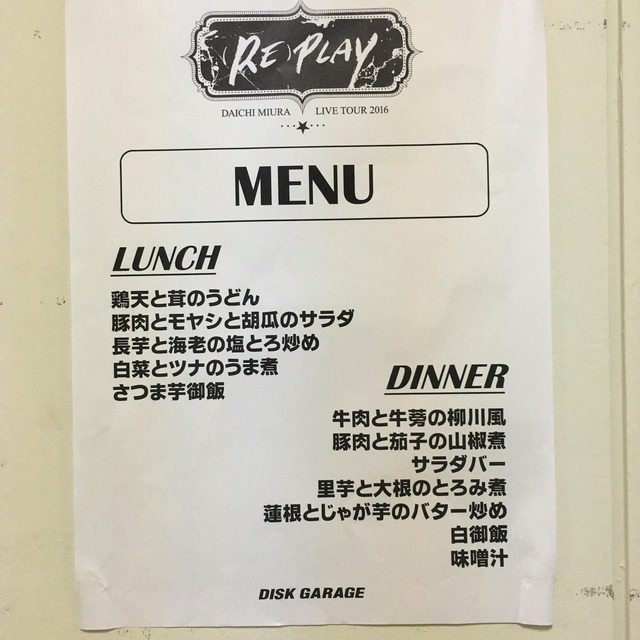 (RE)PLAY
DAICHI MIURA LIVE TOUR 2016
MENU
LUNCH
鶏天と茸のうどん
豚肉とモヤシと胡瓜のサラダ
長芋と海老の塩とろ炒め
白菜とツナのうま煮
さつま芋御飯
DINNER
牛肉と牛蒡の柳川風
豚肉と茄子の山椒煮
サラダバー
里芋と大根のとろみ煮
蓮根とじゃが芋のバター炒め
白御飯
味噌汁
DISK GARAGE